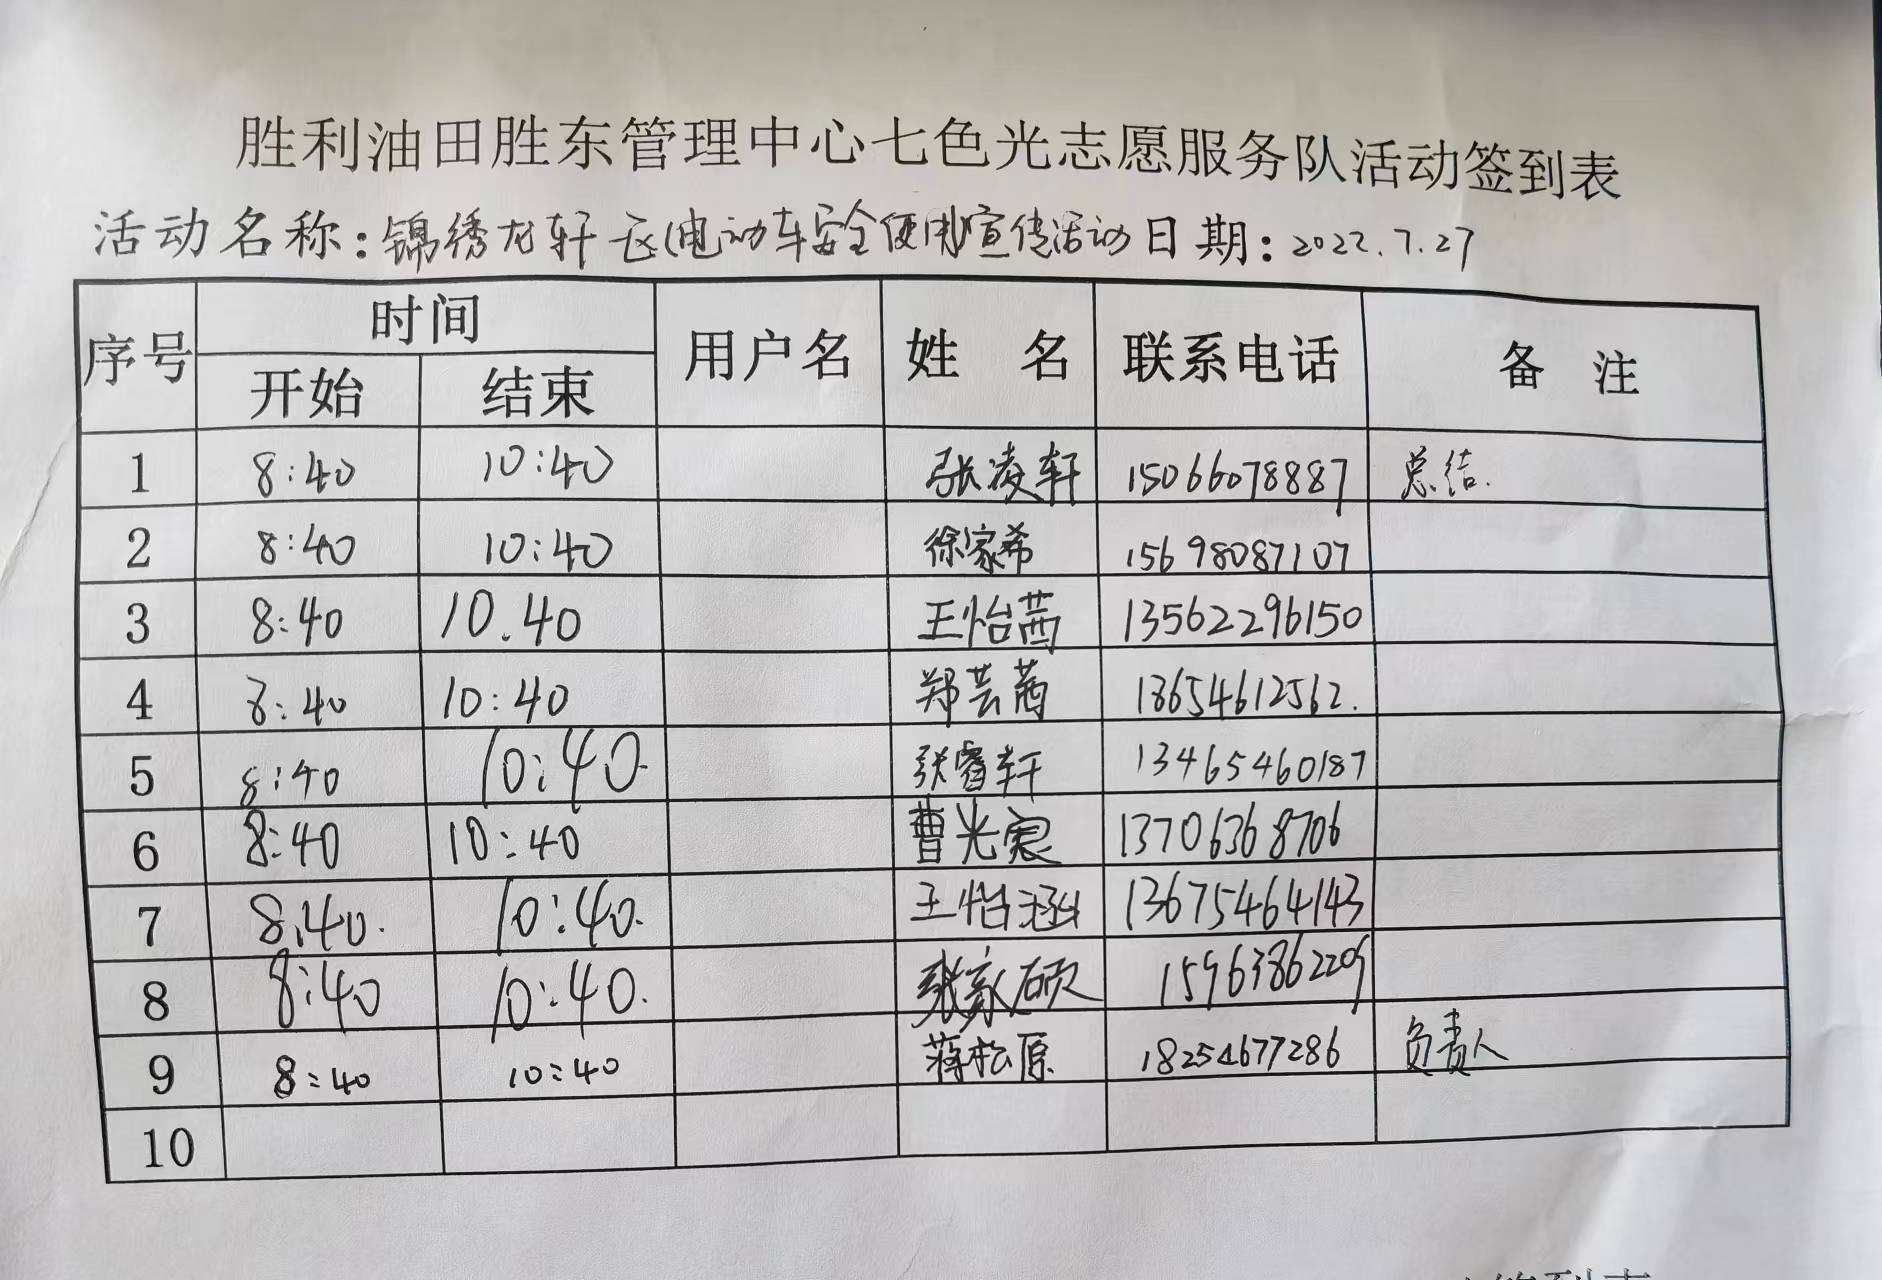 胜利油田胜东管理中心七色光志愿服务队活动签到表
活动名称：锦绣龙轩 区(电动车安全使用宣传活动 日期：2022.7.27
序号 时间 用户名 姓 名 联系电话 备 注
开始 结束
1 8:40 10:40 张凌轩 15066078887 总结.
2 8:40 10:40 徐家希 15698087107
3 8:40 10.40 王怡茜 13562296150
4 8:40 10:40 郑芸茜 18654612562.
5 8:40 10:40. 张睿轩 13465460187
6 8:40 10:40 曹光 13706368706
7 8:40. 10:40. 王怡涵 13675464143
8 8:40 10:40. 张家硕 15963862209
9 8:40 10:40 蒋松原 18254677286 负责人
10